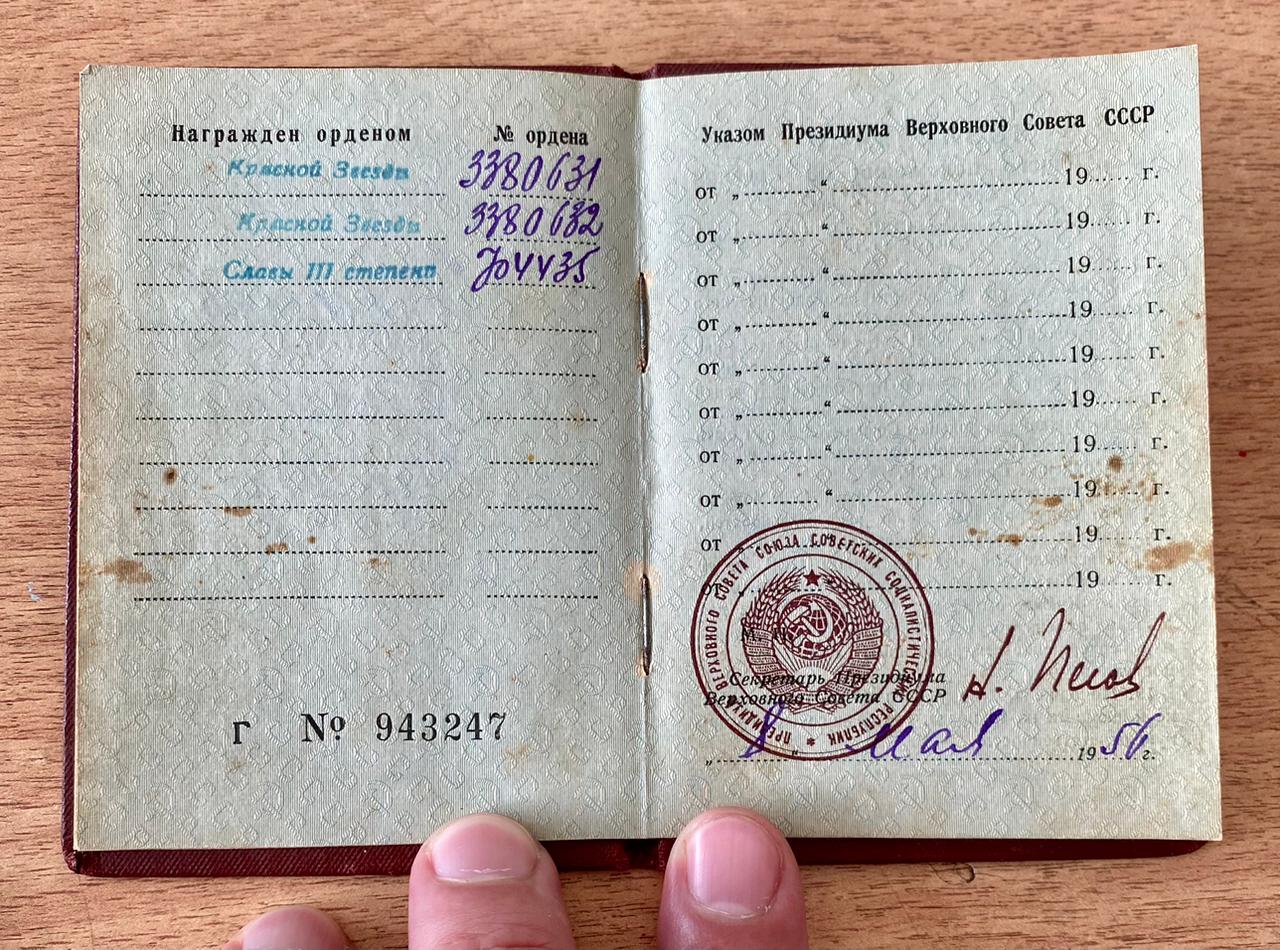 Награжден орденом № ордена
Красной Звезды 3380631
Красной Звезды 3380632
Славы III степени 704435
Г № 943247
Указом Президиума Верховного Совета СССР
от „ “ 19 г.
от „ “ 19 г.
от „ “ 19 г.
от „ “ 19 г.
от „ “ 19 г.
от „ “ 19 г.
от „ “ 19 г.
от „ “ 19 г.
от „ “ 19 г.
от „ “ 19 г.
ПРЕЗИДИУМ ВЕРХОВНОГО СОВЕТА СОЮЗА СОВЕТСКИХ СОЦИАЛИСТИЧЕСКИХ РЕСПУБЛИК
М. П.
Секретарь Президиума
Верховного Совета СССР
„8“ мая 1956 г.